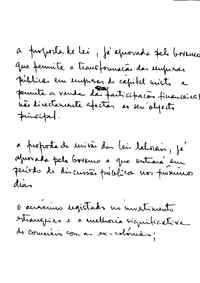 a proposta de lei, já aprovada pelo Governo
que permite a transformação das empresas
públicas em empresas de capital misto e
permite a venda de participações financeiras
não directamente afectas ao seu objecto
principal.
a proposta de revisão das leis laborais, já
aprovada pelo Governo e que entrará em
período de discussão pública nos próximos
dias
o acréscimo registado no investimento
estrangeiro e a melhoria significativa
do comércio com as ex-colónias;